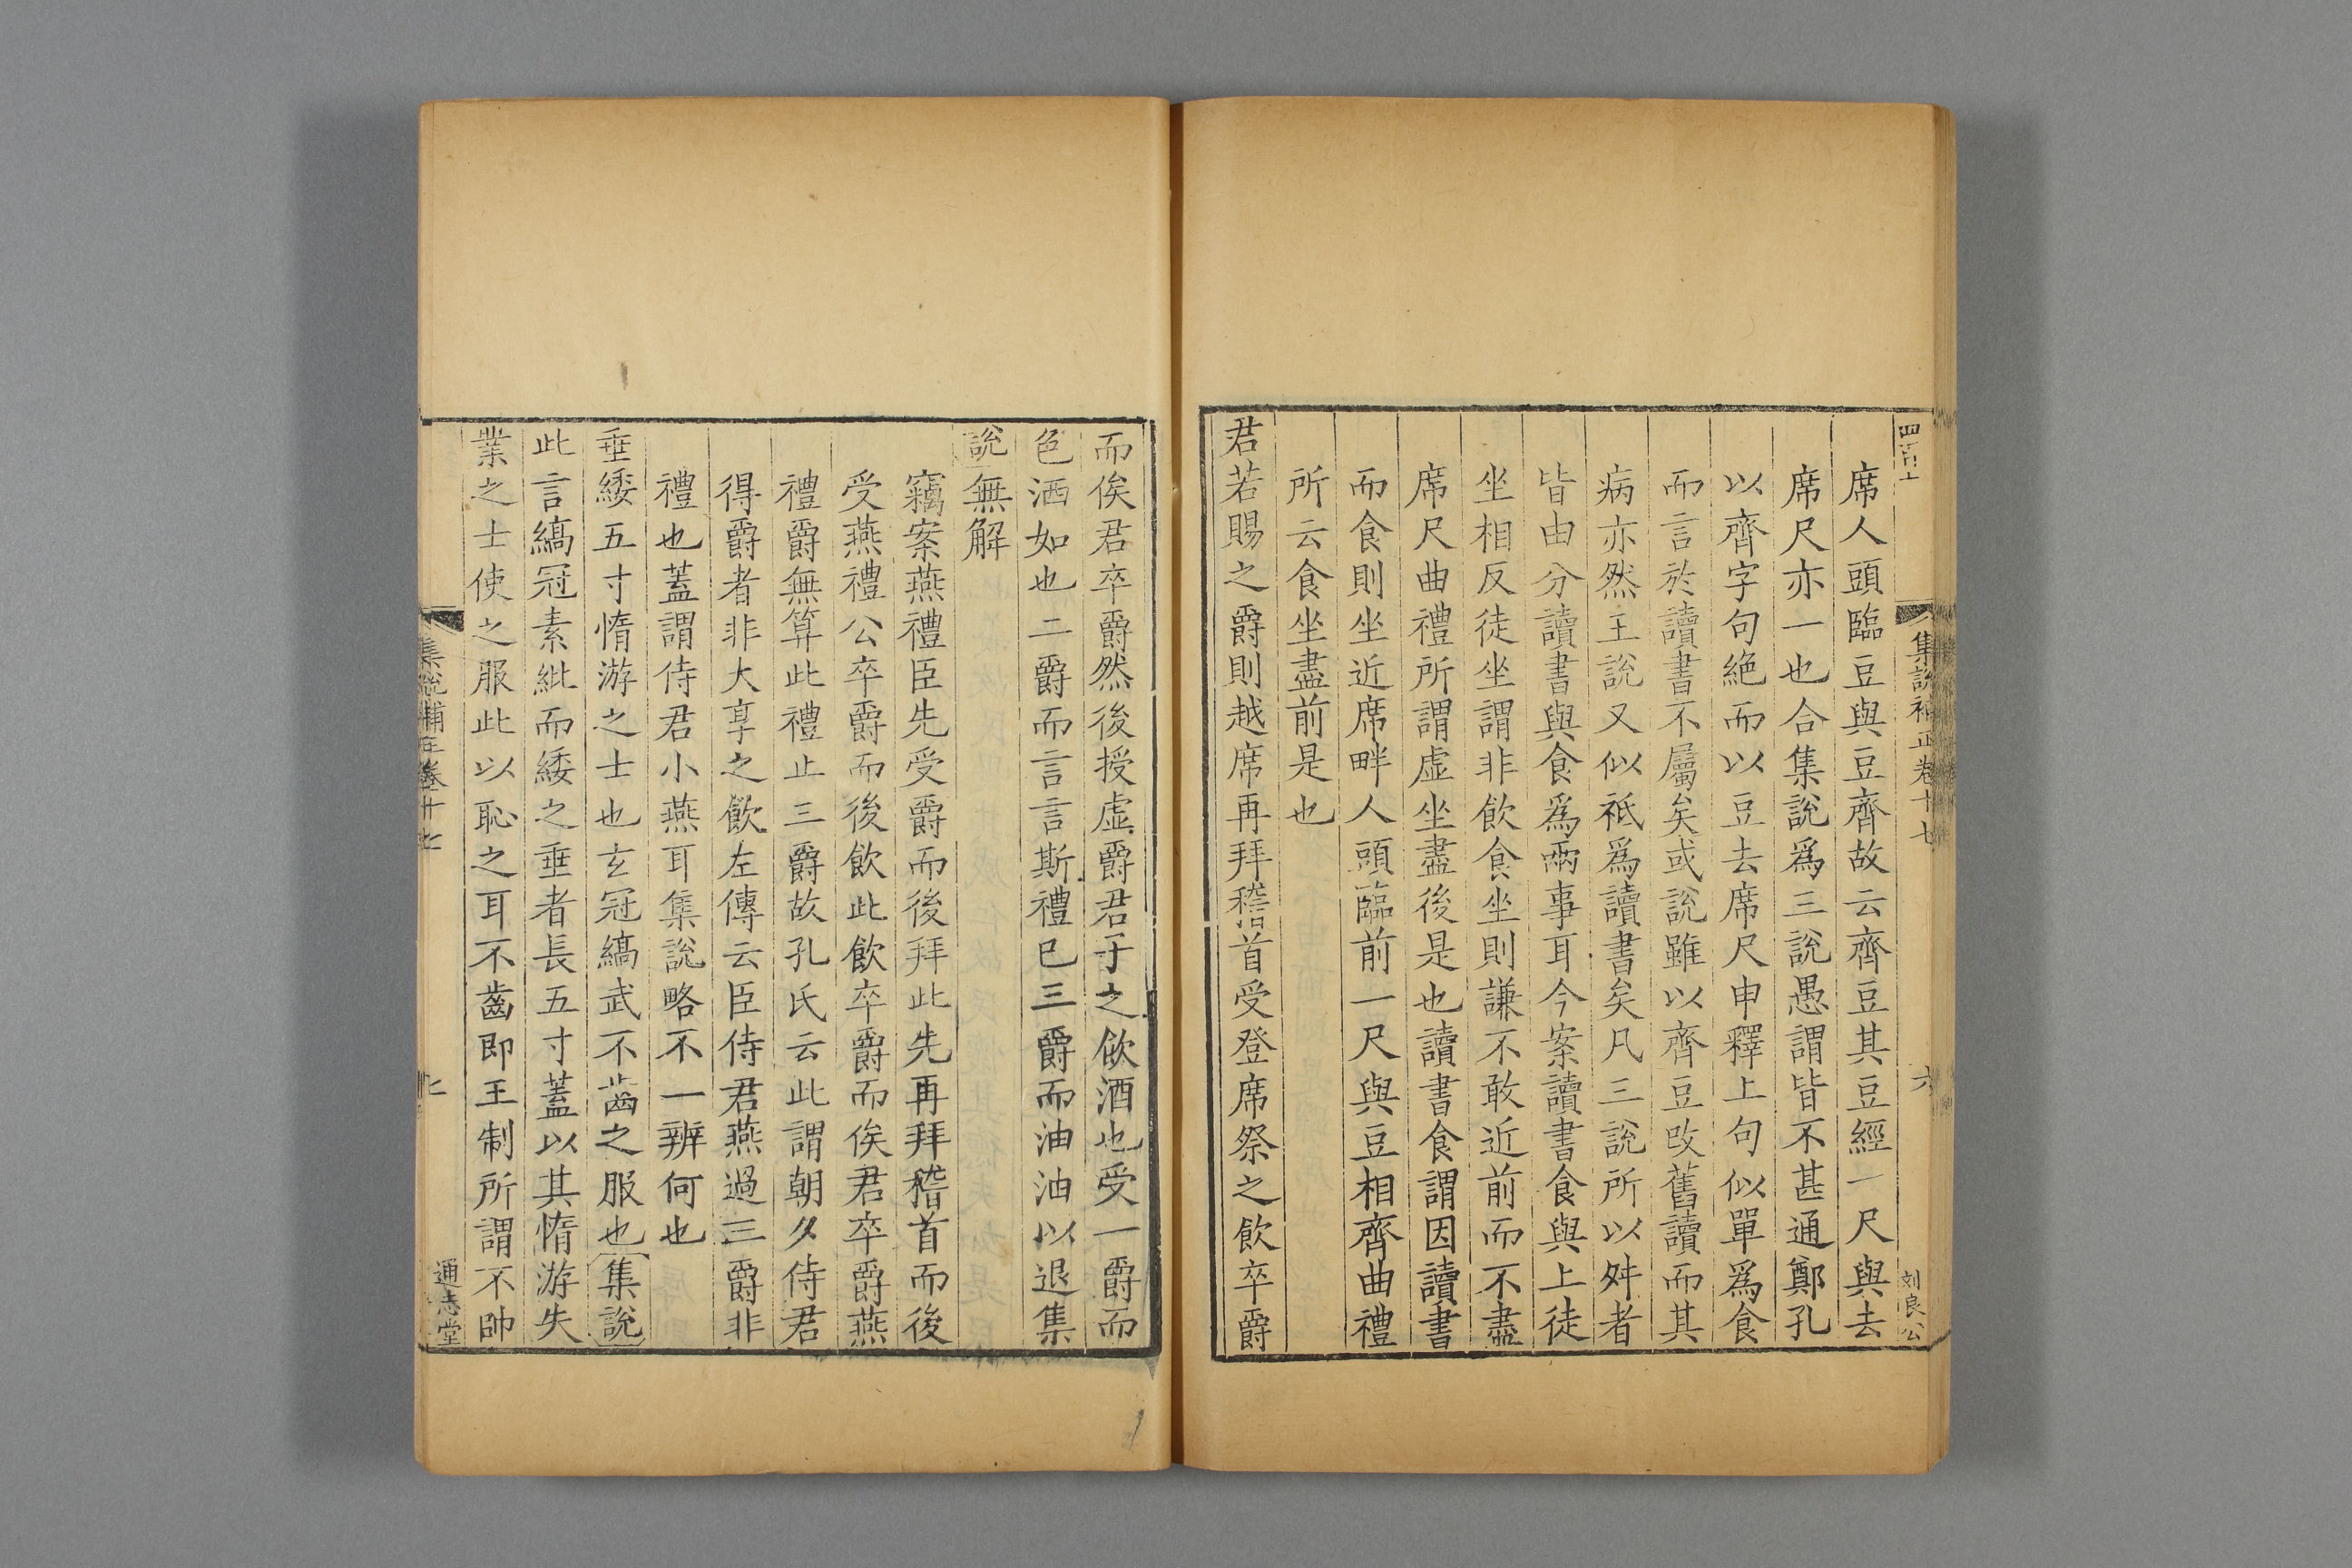 席人頭臨豆與豆齊故云齊豆其豆經一尺與去
席尺亦一也合集說爲三說愚謂皆不甚通鄭孔
以齊字句絶而以豆去席尺申釋上句似單爲食
而言於讀書不屬矣或說雖以齊豆改舊讀而其
病亦然王說又似祇爲讀書矣凡三說所以舛者
皆由分讀書與食爲兩事耳今案讀書食與上徒
坐相反徒坐謂非飲食坐則謙不敢近前而不盡
席尺曲禮所謂虛坐盡後是也讀書食謂因讀書
而食則坐近席畔人頭臨前一尺與豆相齊曲禮
所云食坐盡前是也
君若賜之爵則越席再拜稽首受登席祭之飲卒爵
集說補正卷十七
六
刘良公
而俟君卒爵然後授虛爵君子之飲酒也受一爵而
色洒如也二爵而言言斯禮已三爵而油油以退集
說無解
竊案燕禮臣先受爵而後拜此先再拜稽首而後
受燕禮公卒爵而後飲此飲卒爵而俟君卒爵燕
禮爵無算此禮止三爵故孔氏云此謂朝夕侍君
得爵者非大享之飲左傳云臣侍君燕過三爵非
禮也蓋謂侍君小燕耳集說略不一辨何也
垂緌五寸惰游之士也玄冠縞武不齒之服也集說
此言縞冠素紕而緌之垂者長五寸蓋以其惰游失
業之士使之服此以恥之耳不齒即王制所謂不帥
集說補正卷十七
七
通志堂